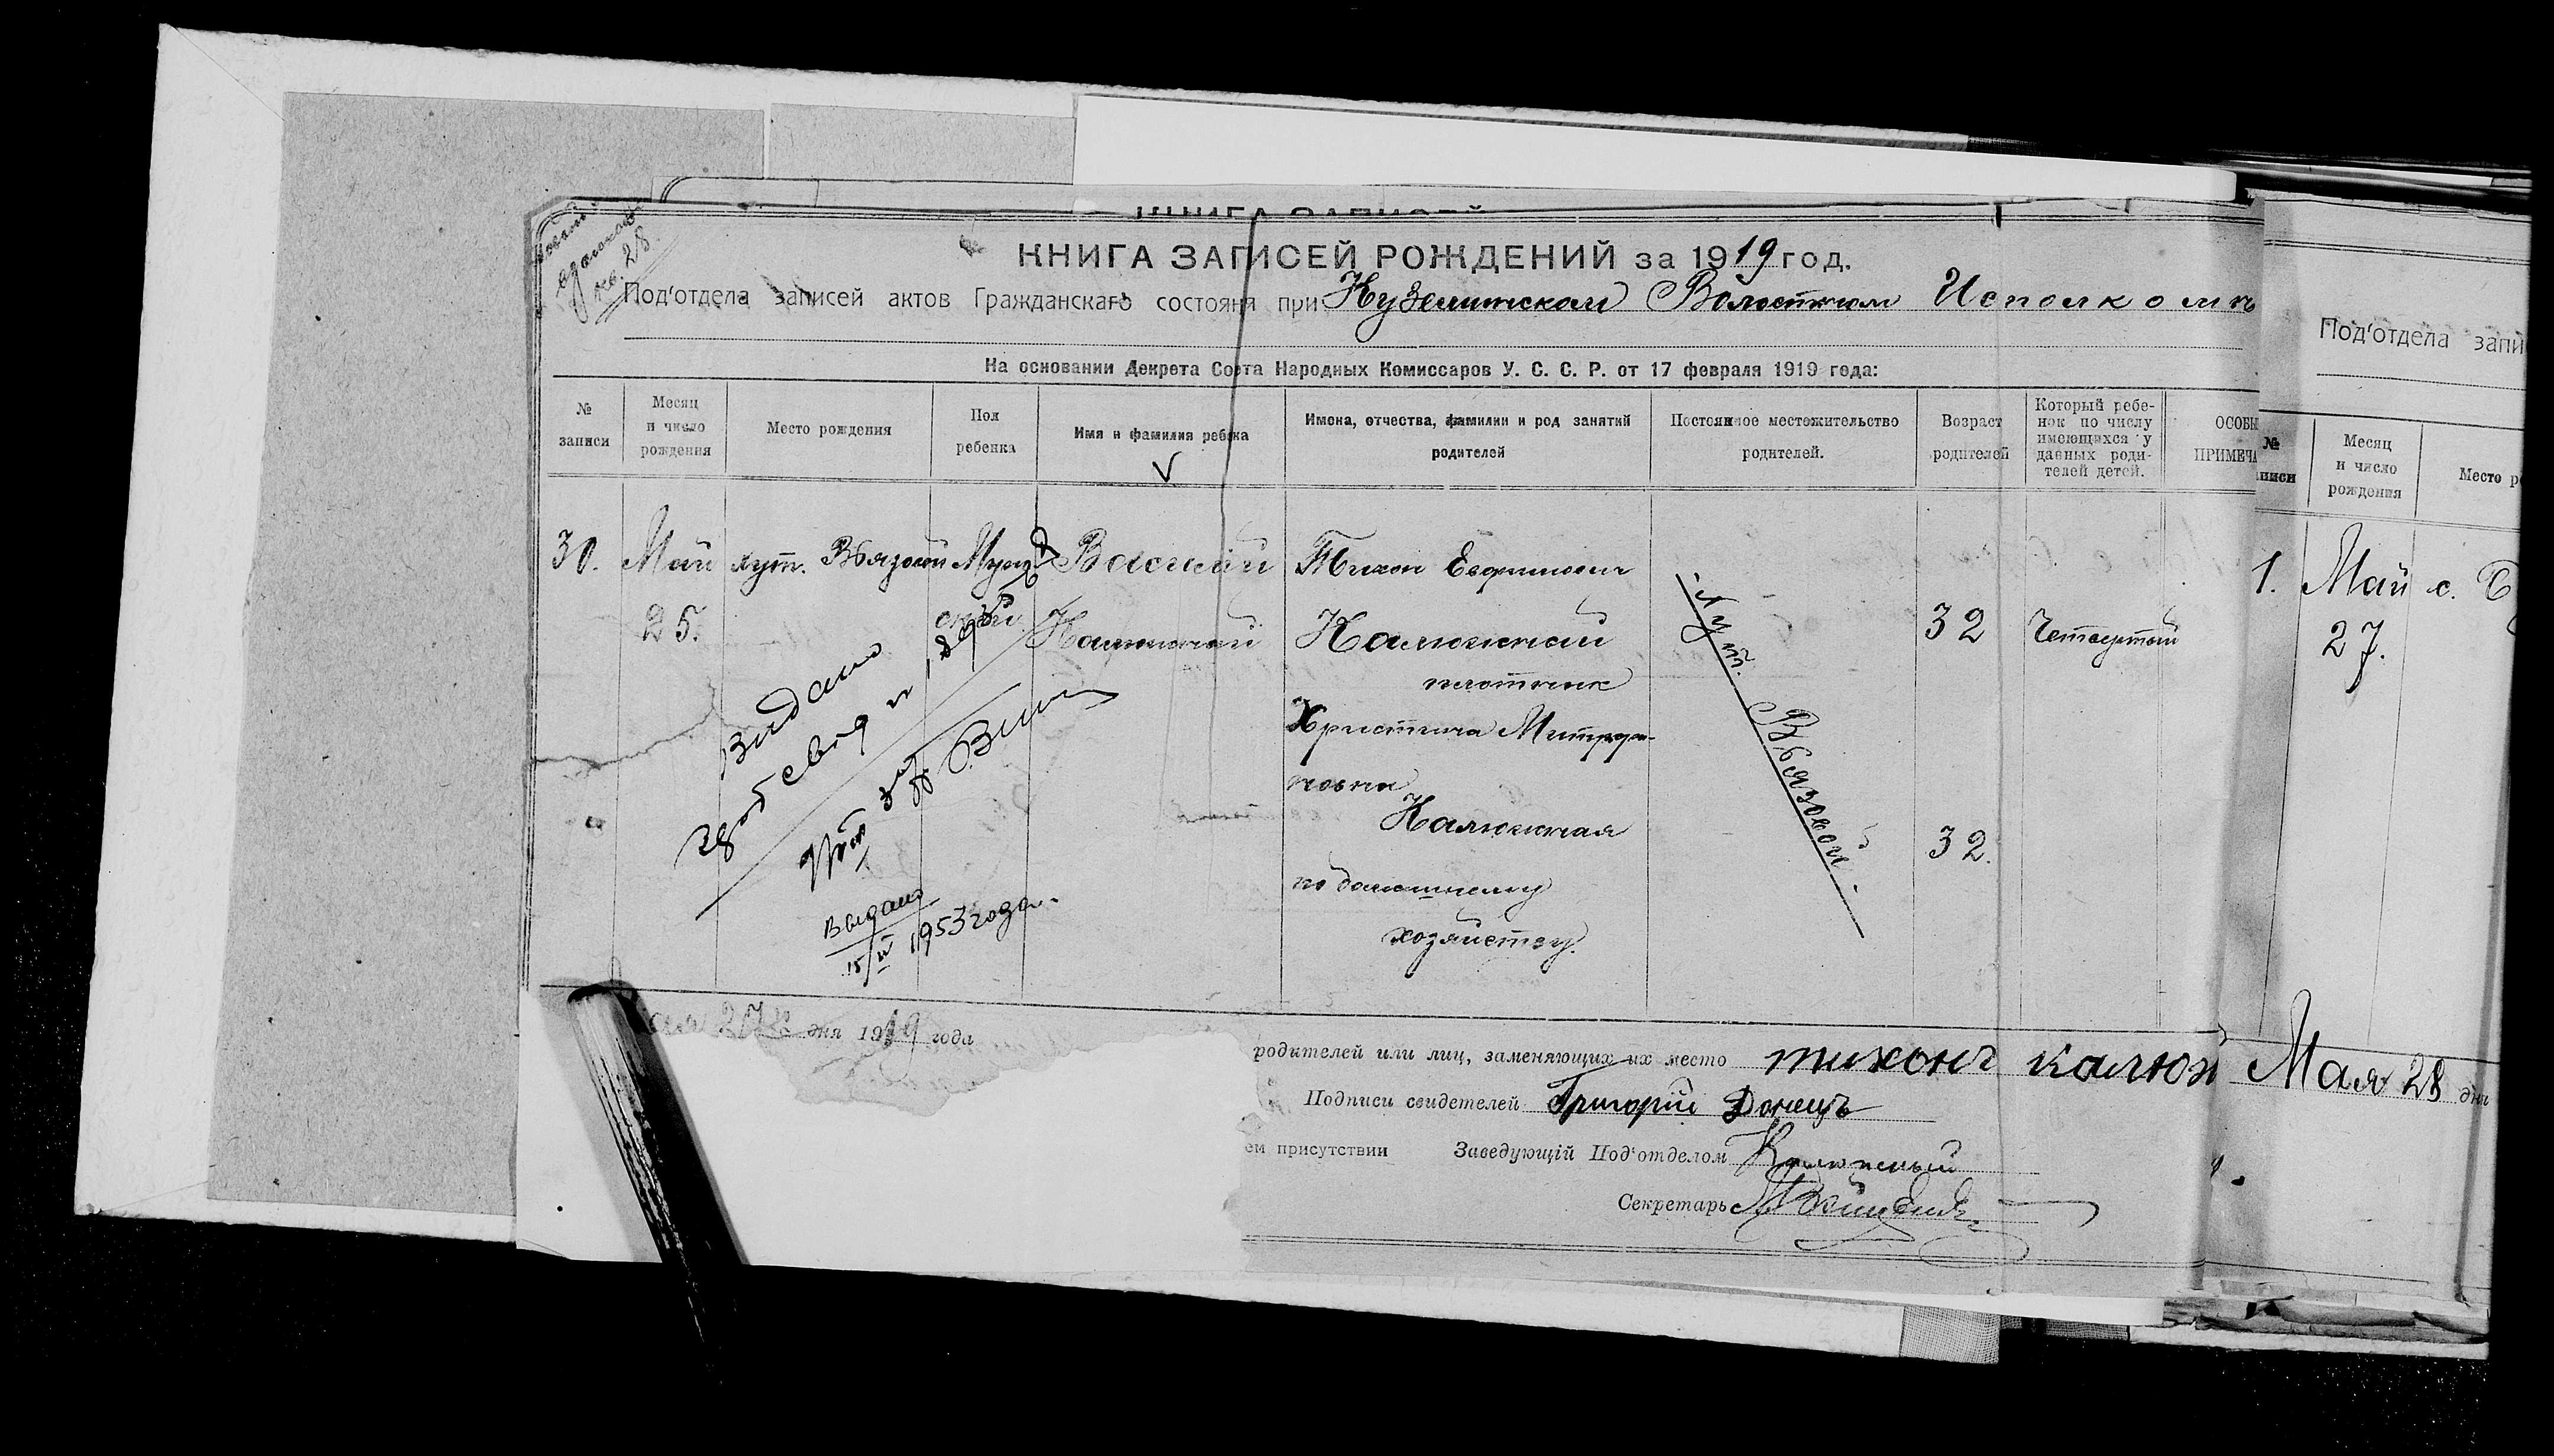 КНИГА ЗАПИСЕЙ РОЖДЕНИЙ за 1919 год.
Под'отдела записей актов Гражданскаго состояня при Куземитском Волостном Исполкоме
На основании Декрета Совта Народных Комиссаров У. С. С. Р. от 17 февраля 1919 года:
№ записи
Месяц и число рождения
Место рождения
Пол ребенка
Имя и фамилия ребека
Имена, отчества, фамилии и род занятий родителей
Постоянное местожительство родителей.
Возраст родителей
Который ребенок по числу имеющихся у данных родителей детей.
ОСОБЫ
ПРИМЕЧА
30.
Май
25.
хут. Вьязовый
Мужской
Василий
Калюжный
Тихон Евфимович
Калюжный
плотник
Христина Митрофановна
Калюжная
по домашнему
хозяйству.
хут. Вьязовой.
32
32.
Четвертый
Видано
Выдано
15/IV 1953 года.
ая 27го дня 1919 года
родителей или лиц, заменяющих их место тихонъ калюж
Подписи свидетелей Григорій Донецъ
ем присутствии Заведующій Под'отделом Калюжный
Секретарь
Под'отдела запи
№
писи
Месяц и число рождения
Место р
1.
Май
27.
с.
Мая 28 дня